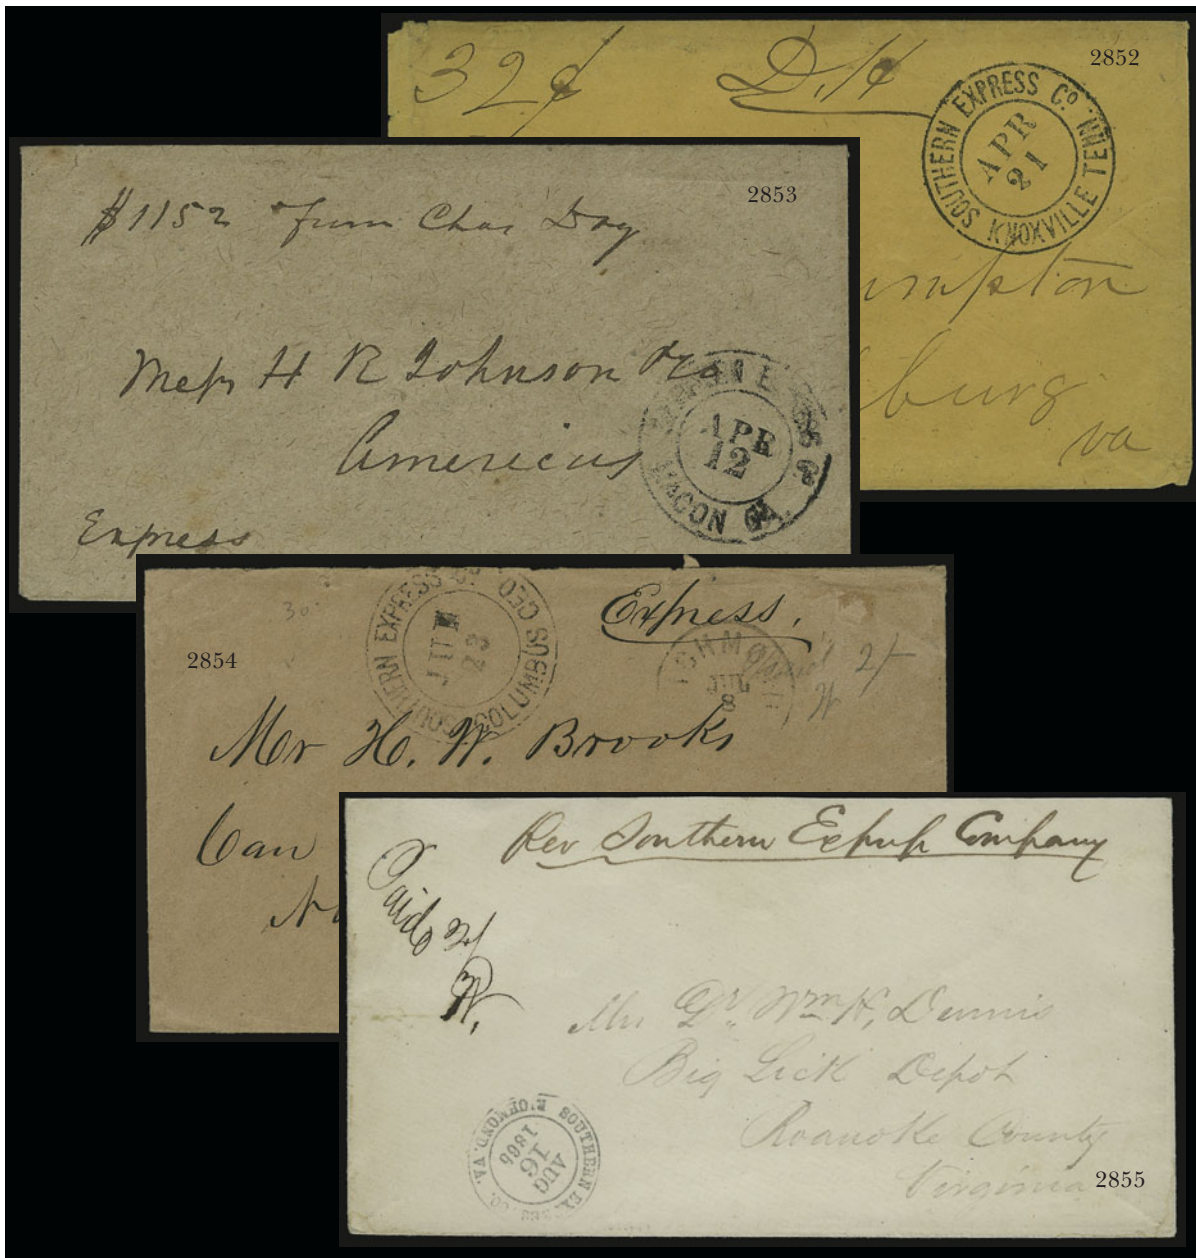 2852
32¢ D.H
SOUTHERN EXPRESS Co. KNOXVILLE TEN.
APR
21
mpton
burg
va
2853
$1152 from Chas Day
Mess H R Johnson
Americus
Express
MACON GA.
APR
12
2854
30
SOUTHERN EXPRESS COLUMBUS GEO
23
Express.
JUL
8
2/
W
Mr H. W. Brooks
Can
Per Southern Express Company
Paid 2/
W.
Mrs Dr. Wm H. Dennis
Big Lick Depot
Roanoke County
Virginia
2855
SOUTHERN EX CO. RICHMOND, VA.
AUG
16